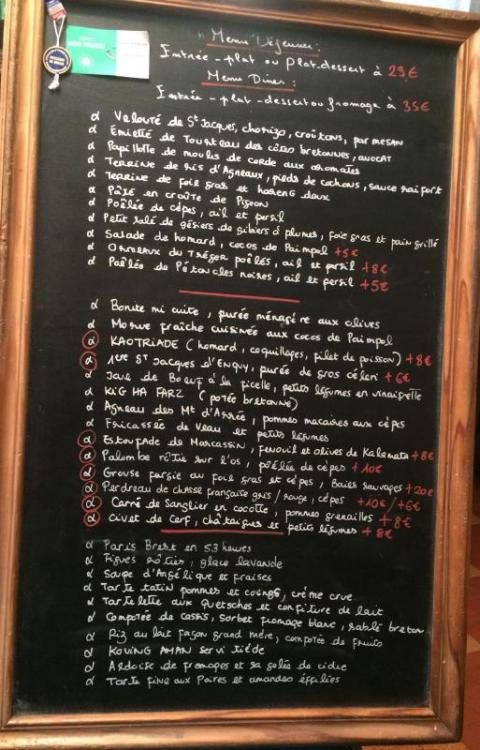 Menu Déjeuner :
Entrée - plat ou Plat-dessert à 29€
Menu Diner :
Entrée - plat - dessert ou fromage à 35€
Velouté de St Jacques, chorizo, croûtons, parmesan
Emietté de Tourteau des côtes bretonnes, avocat
Papillotte de moules de corde aux aromates
Terrine de ris d'Agneaux, pieds de cochons, sauce raifort
Terrine de foie gras et hareng doux
Pâté en croûte de Pigeon
Poêlée de cèpes, ail et persil
Petit salé de gésiers de gibiers à plumes, foie gras et pain grillé
Salade de homard, cocos de Paimpol +5€
Ormeaux du Trégor poêlés, ail et persil +8€
Poêlée de Pétoncles noires, ail et persil +5€
Bonite mi cuite, purée ménagère aux olives
Morue fraîche cuisinée aux cocos de Paimpol
KAOTRIADE (homard, coquillages, filet de poisson) +8€
1ère St Jacques d'Erquy, purée de gros céleri +6€
Joue de Boeuf à la ficelle, petits légumes en vinaigrette
KIG HA FARZ (potée bretonne)
Agneau des Mt d'Arrée, pommes macaires aux cèpes
Fricassée de Veau et petits légumes
Estoufade de Marcassin, fenouil et olives de Kalamata +8€
Palombe rôtie sur l'os, poêlée de cèpes +10€
Grouse farcie au foie gras et cèpes, Baies sauvages +20€
Perdreau de chasse française gris / rouge, cèpes +10€ / +6€
Carré de Sanglier en cocotte, pommes grenailles +8€
Civet de Cerf, châtaignes et petits légumes +8€
Paris Brest en 53 heures
Figues rôties, glace lavande
Soupe d'Angélique et fraises
Tarte tatin pommes et coings, crème crue
Tartelette aux Quetsches et confiture de lait
Compotée de Cassis, sorbet fromage blanc, sablé breton
Riz au lait façon grand mère, compotée de fruits
KOUING AMAN servi tiède
Ardoise de fromages et sa gelée de cidre
Tarte fine aux Poires et amandes éffilées